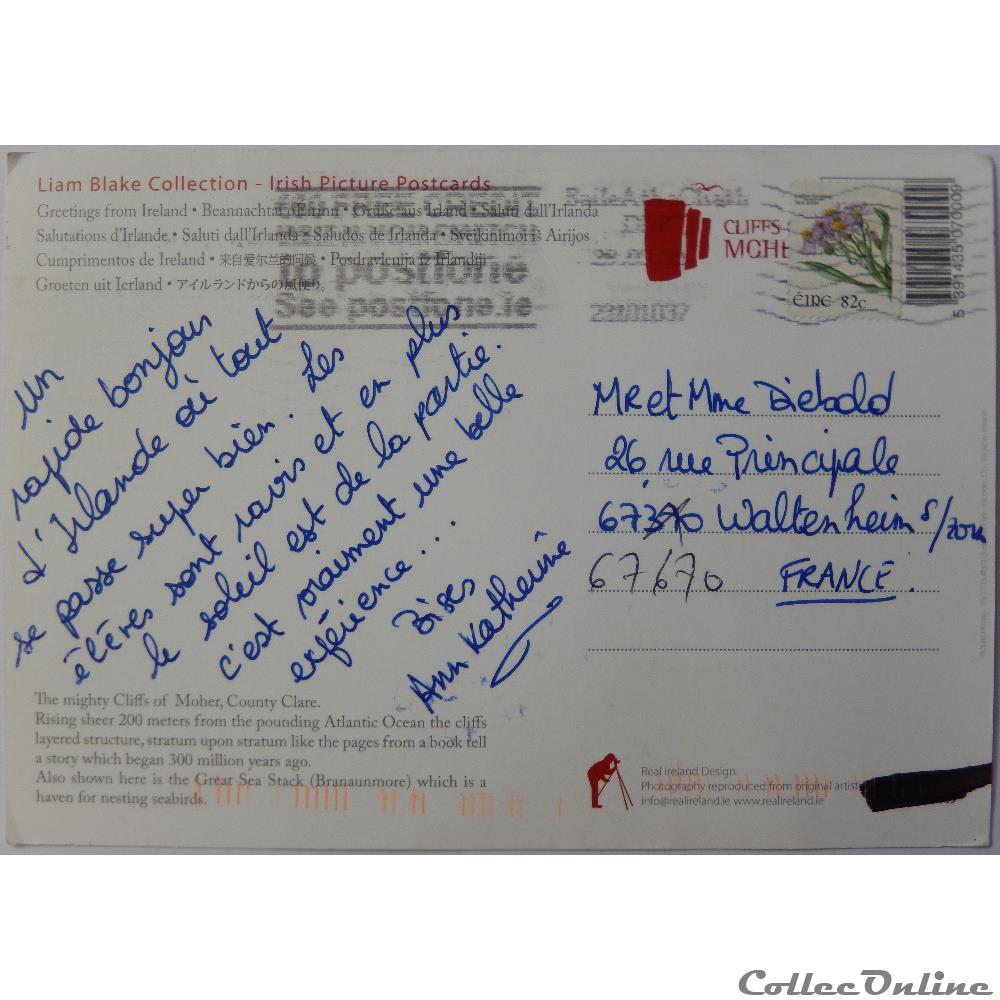 Liam Blake Collection - Irish Picture Postcards
Greetings from Ireland • Beannachtaí oÉirinn • Grüße aus Irland • Saluti dall'Irlanda
Salutations d'Irlande • Saluti dall'Irlanda • Saludos de Irlanda • Sveikinimoi iš Airijos
Cumprimentos de Ireland • 来自爱尔兰的问候 • Posdravlenija iz Irlandiji
Groeten uit Ierland • アイルランドからの風便り。
to postfone
See postfone.ie
23101037
CLIFFS
MOHE
ÉIRE 82c
5 391435 070009
Un
rapide bonjour
d'Irlande où tout
se passe super bien. Les
élèves sont ravis et en plus
le soleil est de la partie.
c'est vraiment une belle
expérience...
Bises
Ann Katherine
MR et Mme Diebold
26 rue Principale
67370 Waltenheim s/Zorn
67670 FRANCE.
The mighty Cliffs of Moher, County Clare.
Rising sheer 200 meters from the pounding Atlantic Ocean the cliffs
layered structure, stratum upon stratum like the pages from a book tell
a story which began 300 million years ago.
Also shown here is the Great Sea Stack (Branaunmore) which is a
haven for nesting seabirds.
Real Ireland Design
Photography reproduced from original artist
info@realireland.ie www.realireland.ie
CollecOnline